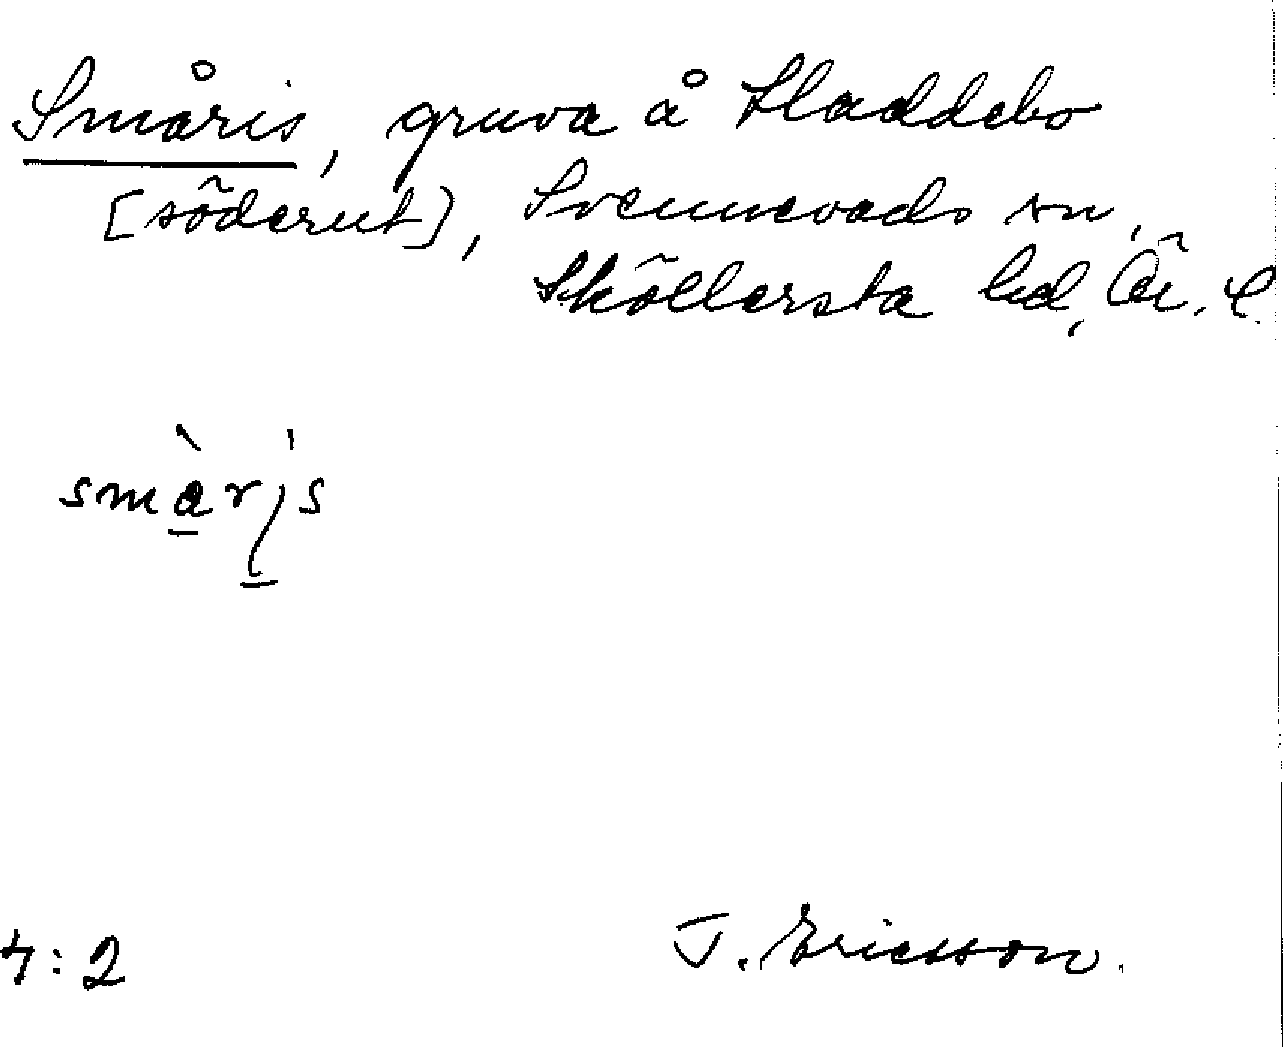 Småris, gruva å Haddebo
[söderut], Svennevads sn,
Sköllersta hd, Ör. l.
smàri̱s
4:2
J. Ericsson.